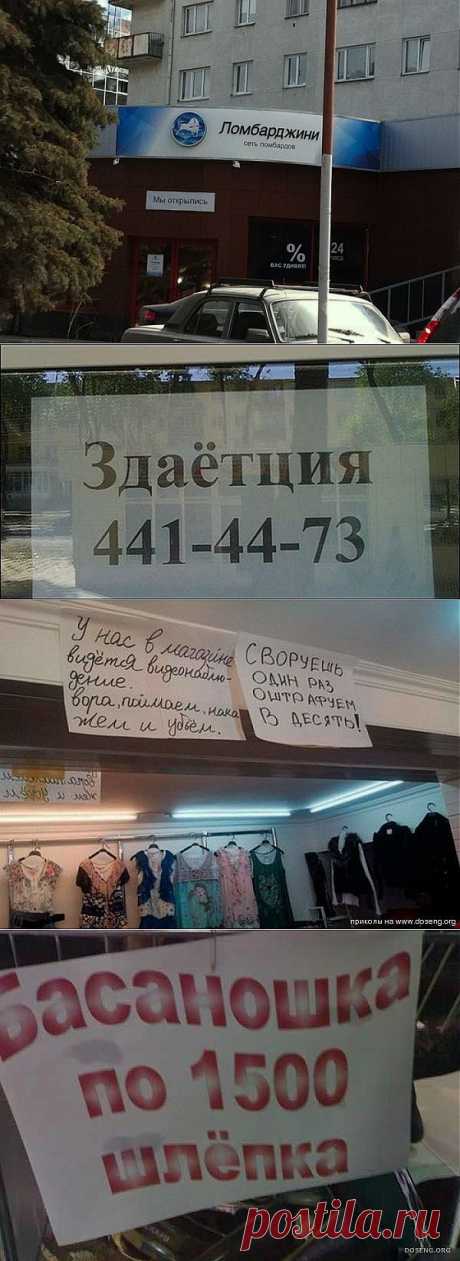 Ломбарджини
сеть ломбардов
Мы открылись
%
24
ВАС УДИВЯТ
Здаётция
441-44-73
У нас в магазине
видётся видеонаблю-
дение.
вора, поймаем, нака
жем и убьём.
СВОРУЕШЬ
ОДИН РАЗ
ОШТРАФУЕМ
В ДЕСЯТЬ!
приколы на www.doseng.org
Басаношка
по 1500
шлёпка
postila.ru
DOSENG.ORG